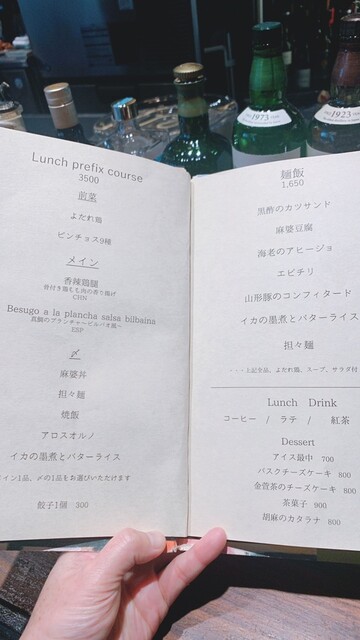 1973
1923
Lunch prefix course
3500
前菜
よだれ鶏
ピンチョス9種
メイン
香辣鶏腿
骨付き鶏もも肉の香り揚げ
CHN
Besugo a la plancha salsa bilbaina
真鯛のプランチャ〜ビルバオ風〜
ESP
〆
麻婆丼
担々麺
焼飯
アロスオルノ
イカの墨煮とバターライス
イン1品、〆の1品をお選びいただけます
餃子1個 300
麺飯
1,650
黒酢のカツサンド
麻婆豆腐
海老のアヒージョ
エビチリ
山形豚のコンフィタード
イカの墨煮とバターライス
担々麺
上記全品、よだれ鶏、スープ、サラダ付
Lunch Drink
コーヒー / ラテ / 紅茶
Dessert
アイス最中 700
バスクチーズケーキ 800
金萱茶のチーズケーキ 800
茶菓子 900
胡麻のカタラナ 800